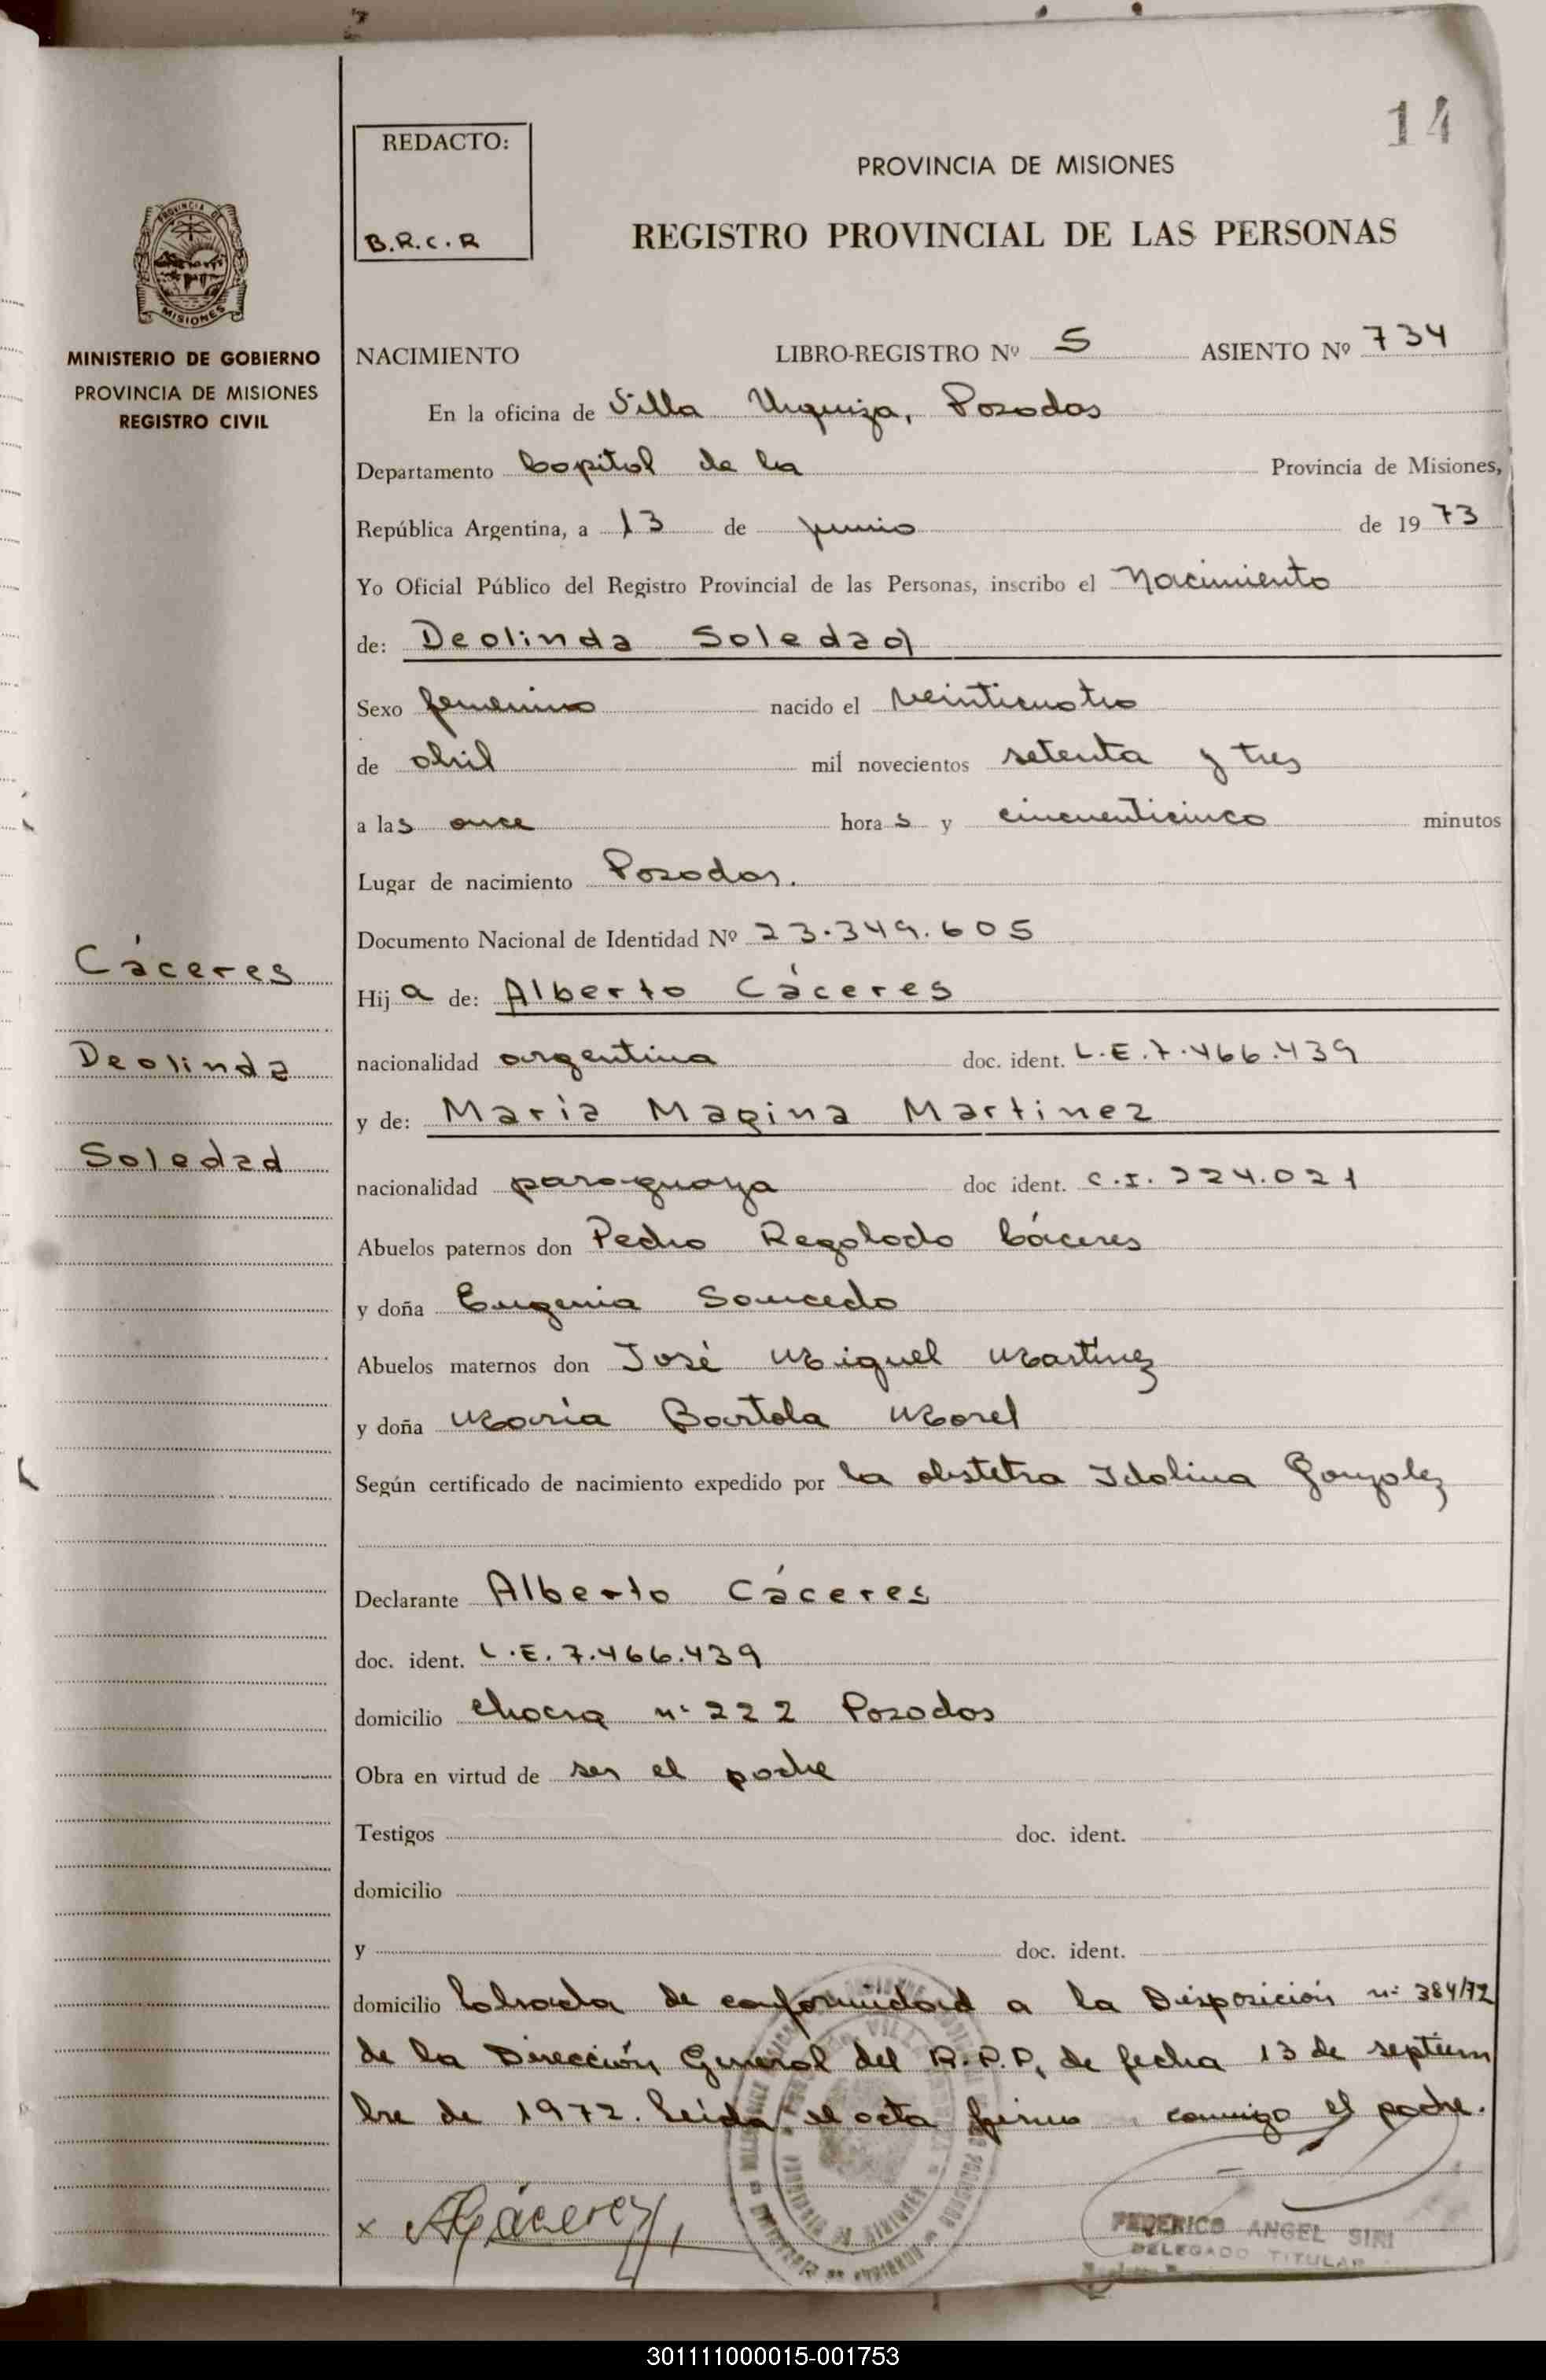 14
REDACTO:
B.R.C.R
PROVINCIA DE MISIONES
REGISTRO PROVINCIAL DE LAS PERSONAS
PROVINCIA DE
MISIONES
MINISTERIO DE GOBIERNO
PROVINCIA DE MISIONES
REGISTRO CIVIL
NACIMIENTO LIBRO-REGISTRO Nº 5 ASIENTO Nº 734
En la oficina de Villa Urquiza, Posadas
Departamento Capital de la Provincia de Misiones,
República Argentina, a 13 de junio de 1973
Yo Oficial Público del Registro Provincial de las Personas, inscribo el Nacimiento
de: Deolinda Soledad
Sexo femenino nacido el veinticuatro
de abril mil novecientos setenta y tres
a las once horas y cincuenticinco minutos
Lugar de nacimiento Posadas.
Documento Nacional de Identidad Nº 23.349.605
Cáceres
Hija de: Alberto Cáceres
Deolinda
nacionalidad argentina doc. ident. L.E.7.466.439
y de: María Magina Martinez
Soledad
nacionalidad paraguaya doc ident. C.I. 224.021
Abuelos paternos don Pedro Regalado Cáceres
y doña Eugenia Saucedo
Abuelos maternos don José Miguel Martínez
y doña María Bartola Morel
Según certificado de nacimiento expedido por la obstetra Idalina Gonzalez
Declarante Alberto Cáceres
doc. ident. L.E. 7.466.439
domicilio chacra nº 222 Posadas
Obra en virtud de ser el padre
Testigos doc. ident.
domicilio
y doc. ident.
domicilio Labrada de conformidad a la Disposición nº 384/72
de la Dirección General del R.P.P. de fecha 13 de septiem
bre de 1972. Leída el acta firma conmigo el padre.
x ACáceres
FEDERICO ANGEL SIRI
DELEGADO TITULAR
301111000015-001753